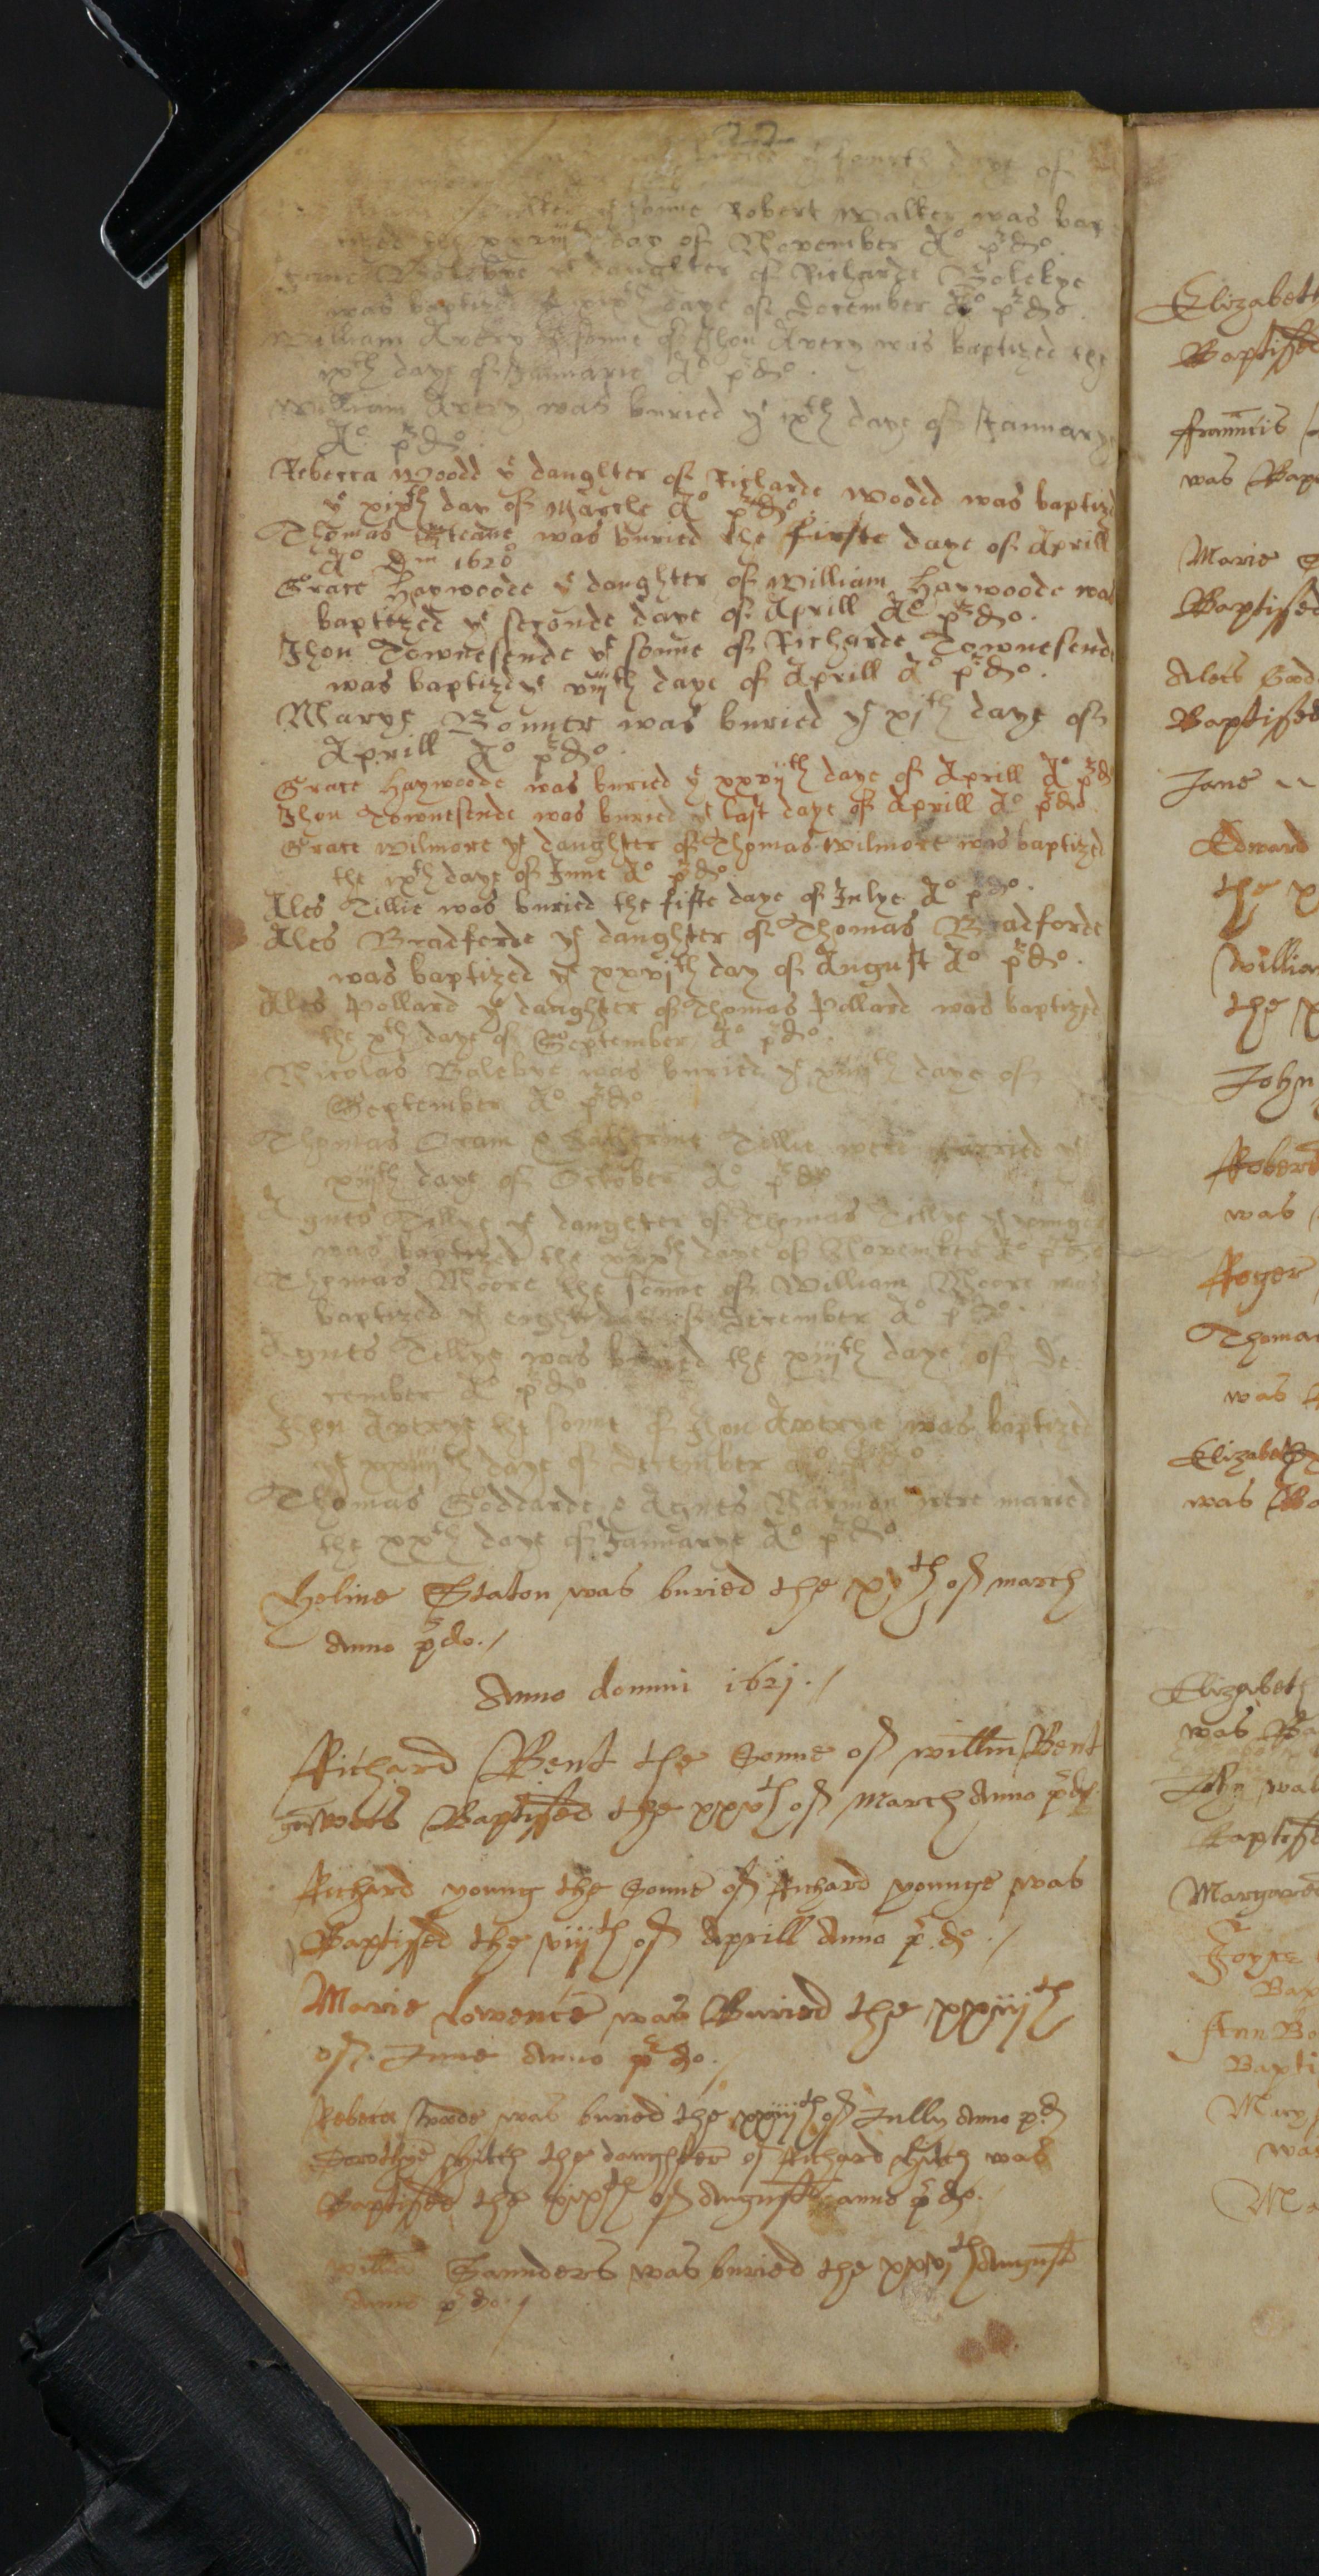 22
buried yͤ fourth daye of
yͤ sonne Robert Walker was bap
tized the xxviiiᵗʰ day of November Aº p̄dº.
yͤ daughter of Richarde Bolebye
was baptized yͤ xixᵗʰ daye of December Aº p̄dº.
William Avery yͤ sonne of Jhon Avery was baptized the
ixᵗʰ daye of Januarie Aº p̄dº.
William Avery was buried yͤ ixᵗʰ daye of January
Aº p̄dº.
Rebecca Woodd yͤ daughter of Richarde Woodd was baptizd
yͤ xixᵗʰ day of Marche Aº p̄dº.
Thomas was buried the firste daye of Aprill
Aº Dm̄ 1620º
Grace Haywoode yͤ daughter of William Haywoode was
baptized yͤ seconde daye of Aprill Aº p̄dº.
Jhon Townesende yͤ sonne of Richarde Townesende
was baptized yͤ viiiᵗʰ daye of Aprill Aº p̄dº.
Marye Bonner was buried yͤ xjᵗʰ daye of
Aprill Aº p̄dº.
Grace Haywoode was buried yͤ xxvijᵗʰ daye of Aprill Aº p̄d
Jhon Townesende was buried yͤ last daye of Aprill Aº p̄dº
Grace Wilmore yͤ daughter of Thomas Wilmore was baptized
the ixᵗʰ daye of June Aº p̄dº.
Ales Tillie was buried the fifte daye of Julye Aº p̄dº.
Ales Bradforde yͤ daughter of Thomas Bradforde
was baptized yͤ xxvjᵗʰ day of August Aº p̄dº.
Ales Pollard yͤ daughter of Thomas Pollard was baptized
the xᵗʰ daye of September Aº p̄dº.
Nicolas Balebye was buried yͤ daye of
September Aº p̄dº
Thomas Oram & Catherine Tillie were married yͤ
xiiᵗʰ daye of October Aº p̄dº
Agnes Tillye yͤ daughter of Thomas Tillye yͤ yonger
was baptized the xxxᵗʰ daye of November Aº p̄dº
Thomas Moore the sonne of William Moore was
baptized yͤ eight daye of December Aº p̄dº.
Agnes Tillye was buried the xiiiᵗʰ daye of De
cember Aº p̄dº.
Jhon Averye the sonne of Jhon Averye was baptized
yͤ xxiiiᵗʰ daye of December Aº p̄dº
Thomas Goddarde & Agnes Harmon were maried
the xxᵗʰ daye of Januarye Aº p̄dº
Heline Staton was buried the xvᵗʰ of march
Anno p̄do./
Anno domini 1621./
Richard Bent the Sonne of willm̄ Bent
was Baptised the xxvᵗʰ of March Anno p̄d
Richard young the Sonne of Richard younge was
Baptised the viijᵗʰ of Aprill Anno p̄.dº./
Marie Lowence was Buried the xxiijᵗʰ
of June Anno p̄do./
Rebeca woode was buried the xxiijᵗʰ of Jully Anno p̄d
Dorothye hitch the daughter of Richard hitch was
Baptised the xixᵗʰ of August anno p̄do.
Saunders was buried the xxvjᵗʰ August
Anno p̄do./
Elizabeth
Baptised
ffrauncis
was Bap
Marie
Baptised
Ales Good
Baptised
Jane
Edward
the x
willia
the
John
Robert
was
Roger
Thomas
was
Elizabeth
was Ba
Elizabeth
was Ba
John wal
Baptise
Margaret
Joyce
Bap
Ann Bo
Bapti
Mary
was
Ma